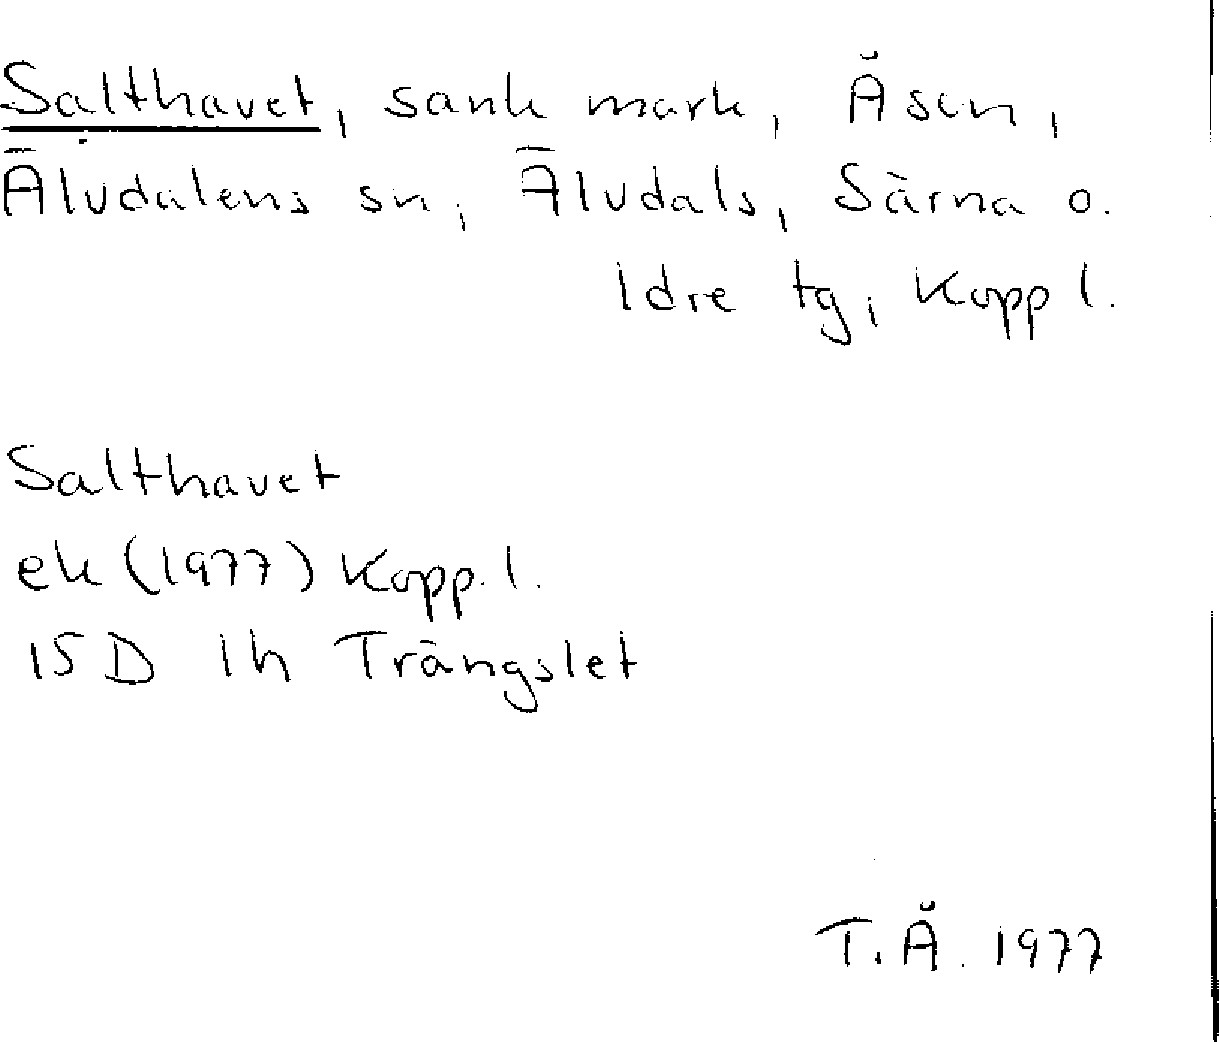 Salthavet, sank mark, Åsen,
Älvdalens sn, Älvdals, Särna o.
Idre tg, Kopp l.
Salthavet
ek (1977) Kopp. l.
15 D 1h Trängslet
T. Å. 1977